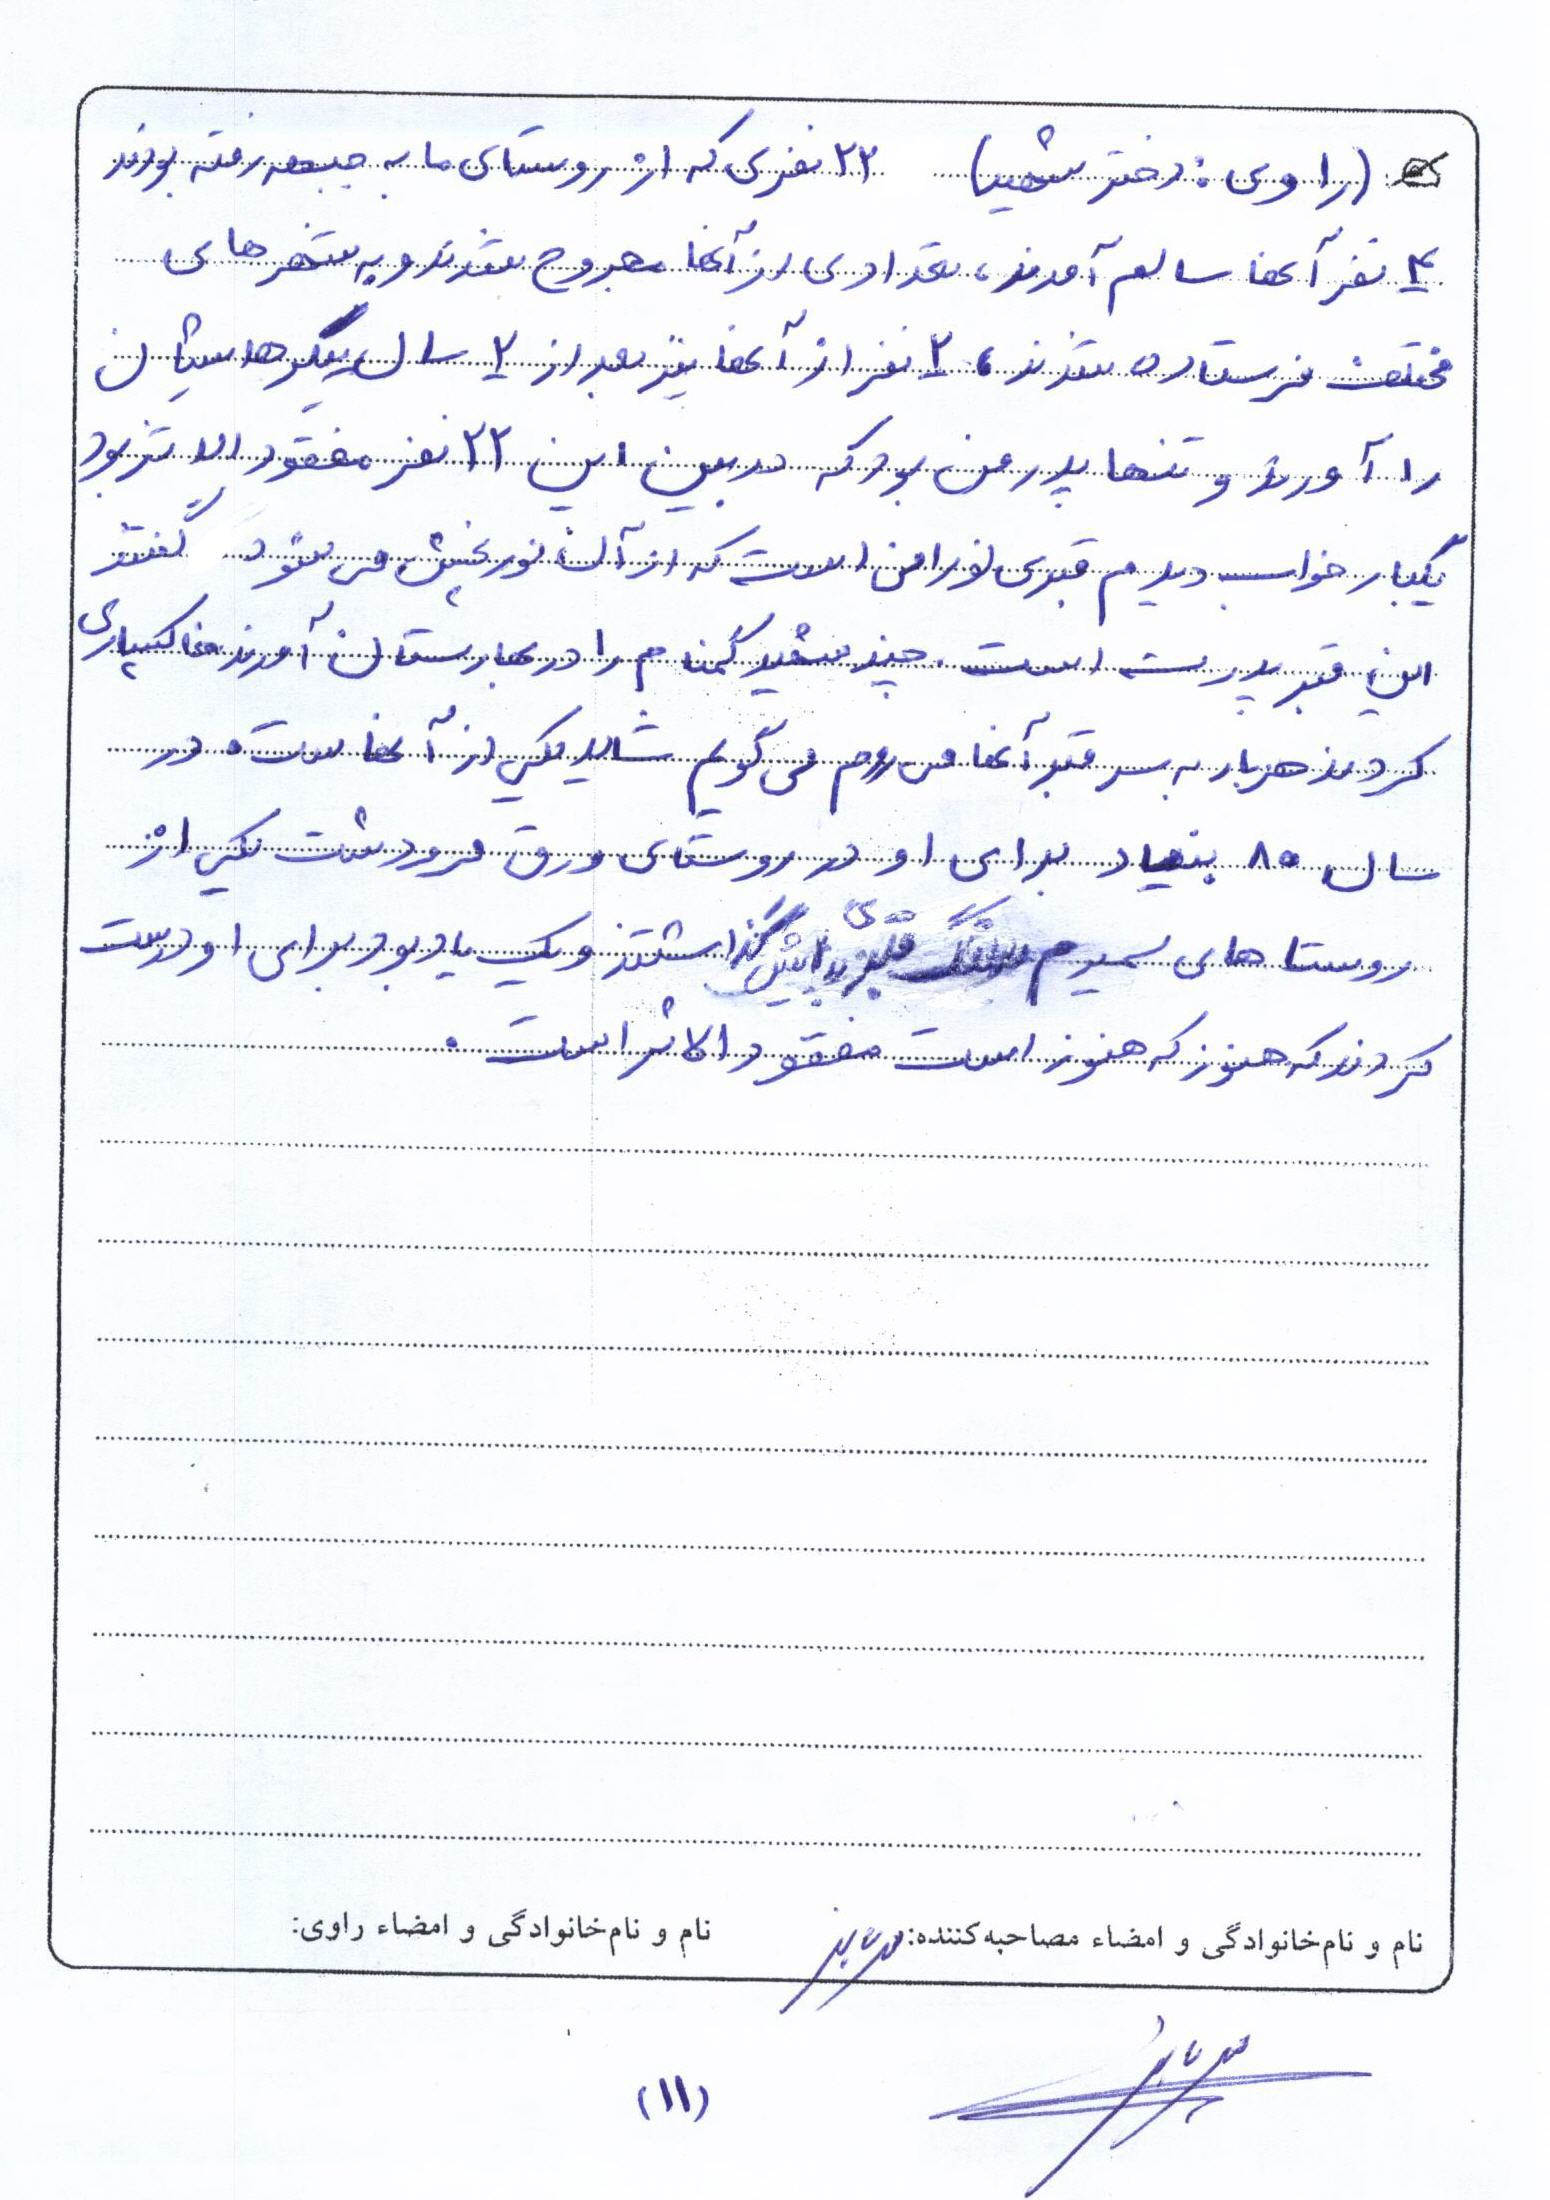 (راوی: دختر شهید) ۲۲ نفری که از روستای ما به جبهه رفته بودند
۴ نفر آنها سالم آمدند، تعدادی از آنها مجروح شدند و به شهرهای
مختلف فرستاده شدند، ۲ نفر از آنها نیز بعد از ۲ سال پیکرهایشان
را آوردند و تنها پدر من بود که در بین این ۲۲ نفر مفقودالاثر بود
یکبار خواب دیدم قبری نورانی است که از آن نور پخش می شود گفتند
این قبر پدرت است. چند شهید گمنام را در بهارستان آوردند خاکسپاری
کردند هربار به سر قبر آنها می روم می گویم شاید یکی از آنهاست. در
سال ۸۰ بنیاد برای او در روستای ورق فرودشت یکی از
روستاهای سمیرم سنگ قبری برایش گذاشتند و یک یادبود برای او درست
کردند که هنوز که هنوز است مفقودالاثر است.
نام و نام‌خانوادگی و امضاء مصاحبه‌کننده: نام و نام‌خانوادگی و امضاء راوی:
(۱۱)